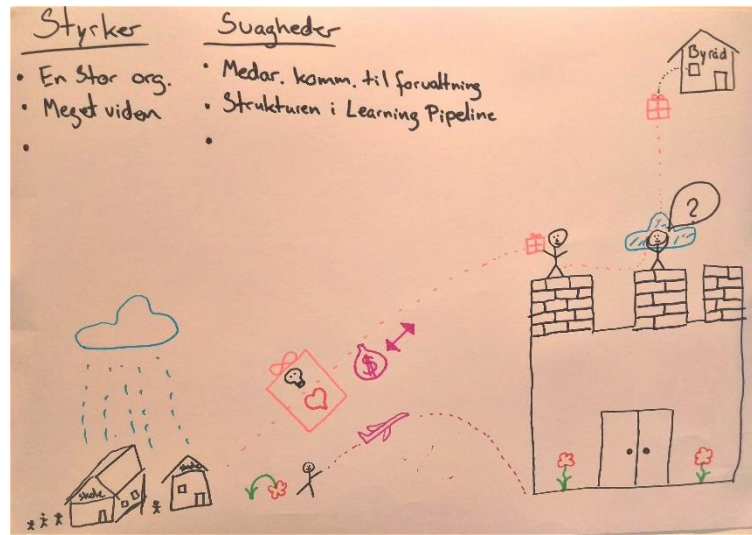 Styrker
• En Stor org.
• Meget viden
•
Svagheder
• Medar. komm. til forvaltning
• Strukturen i Learning Pipeline
•
Byråd
?
$
skole
skole